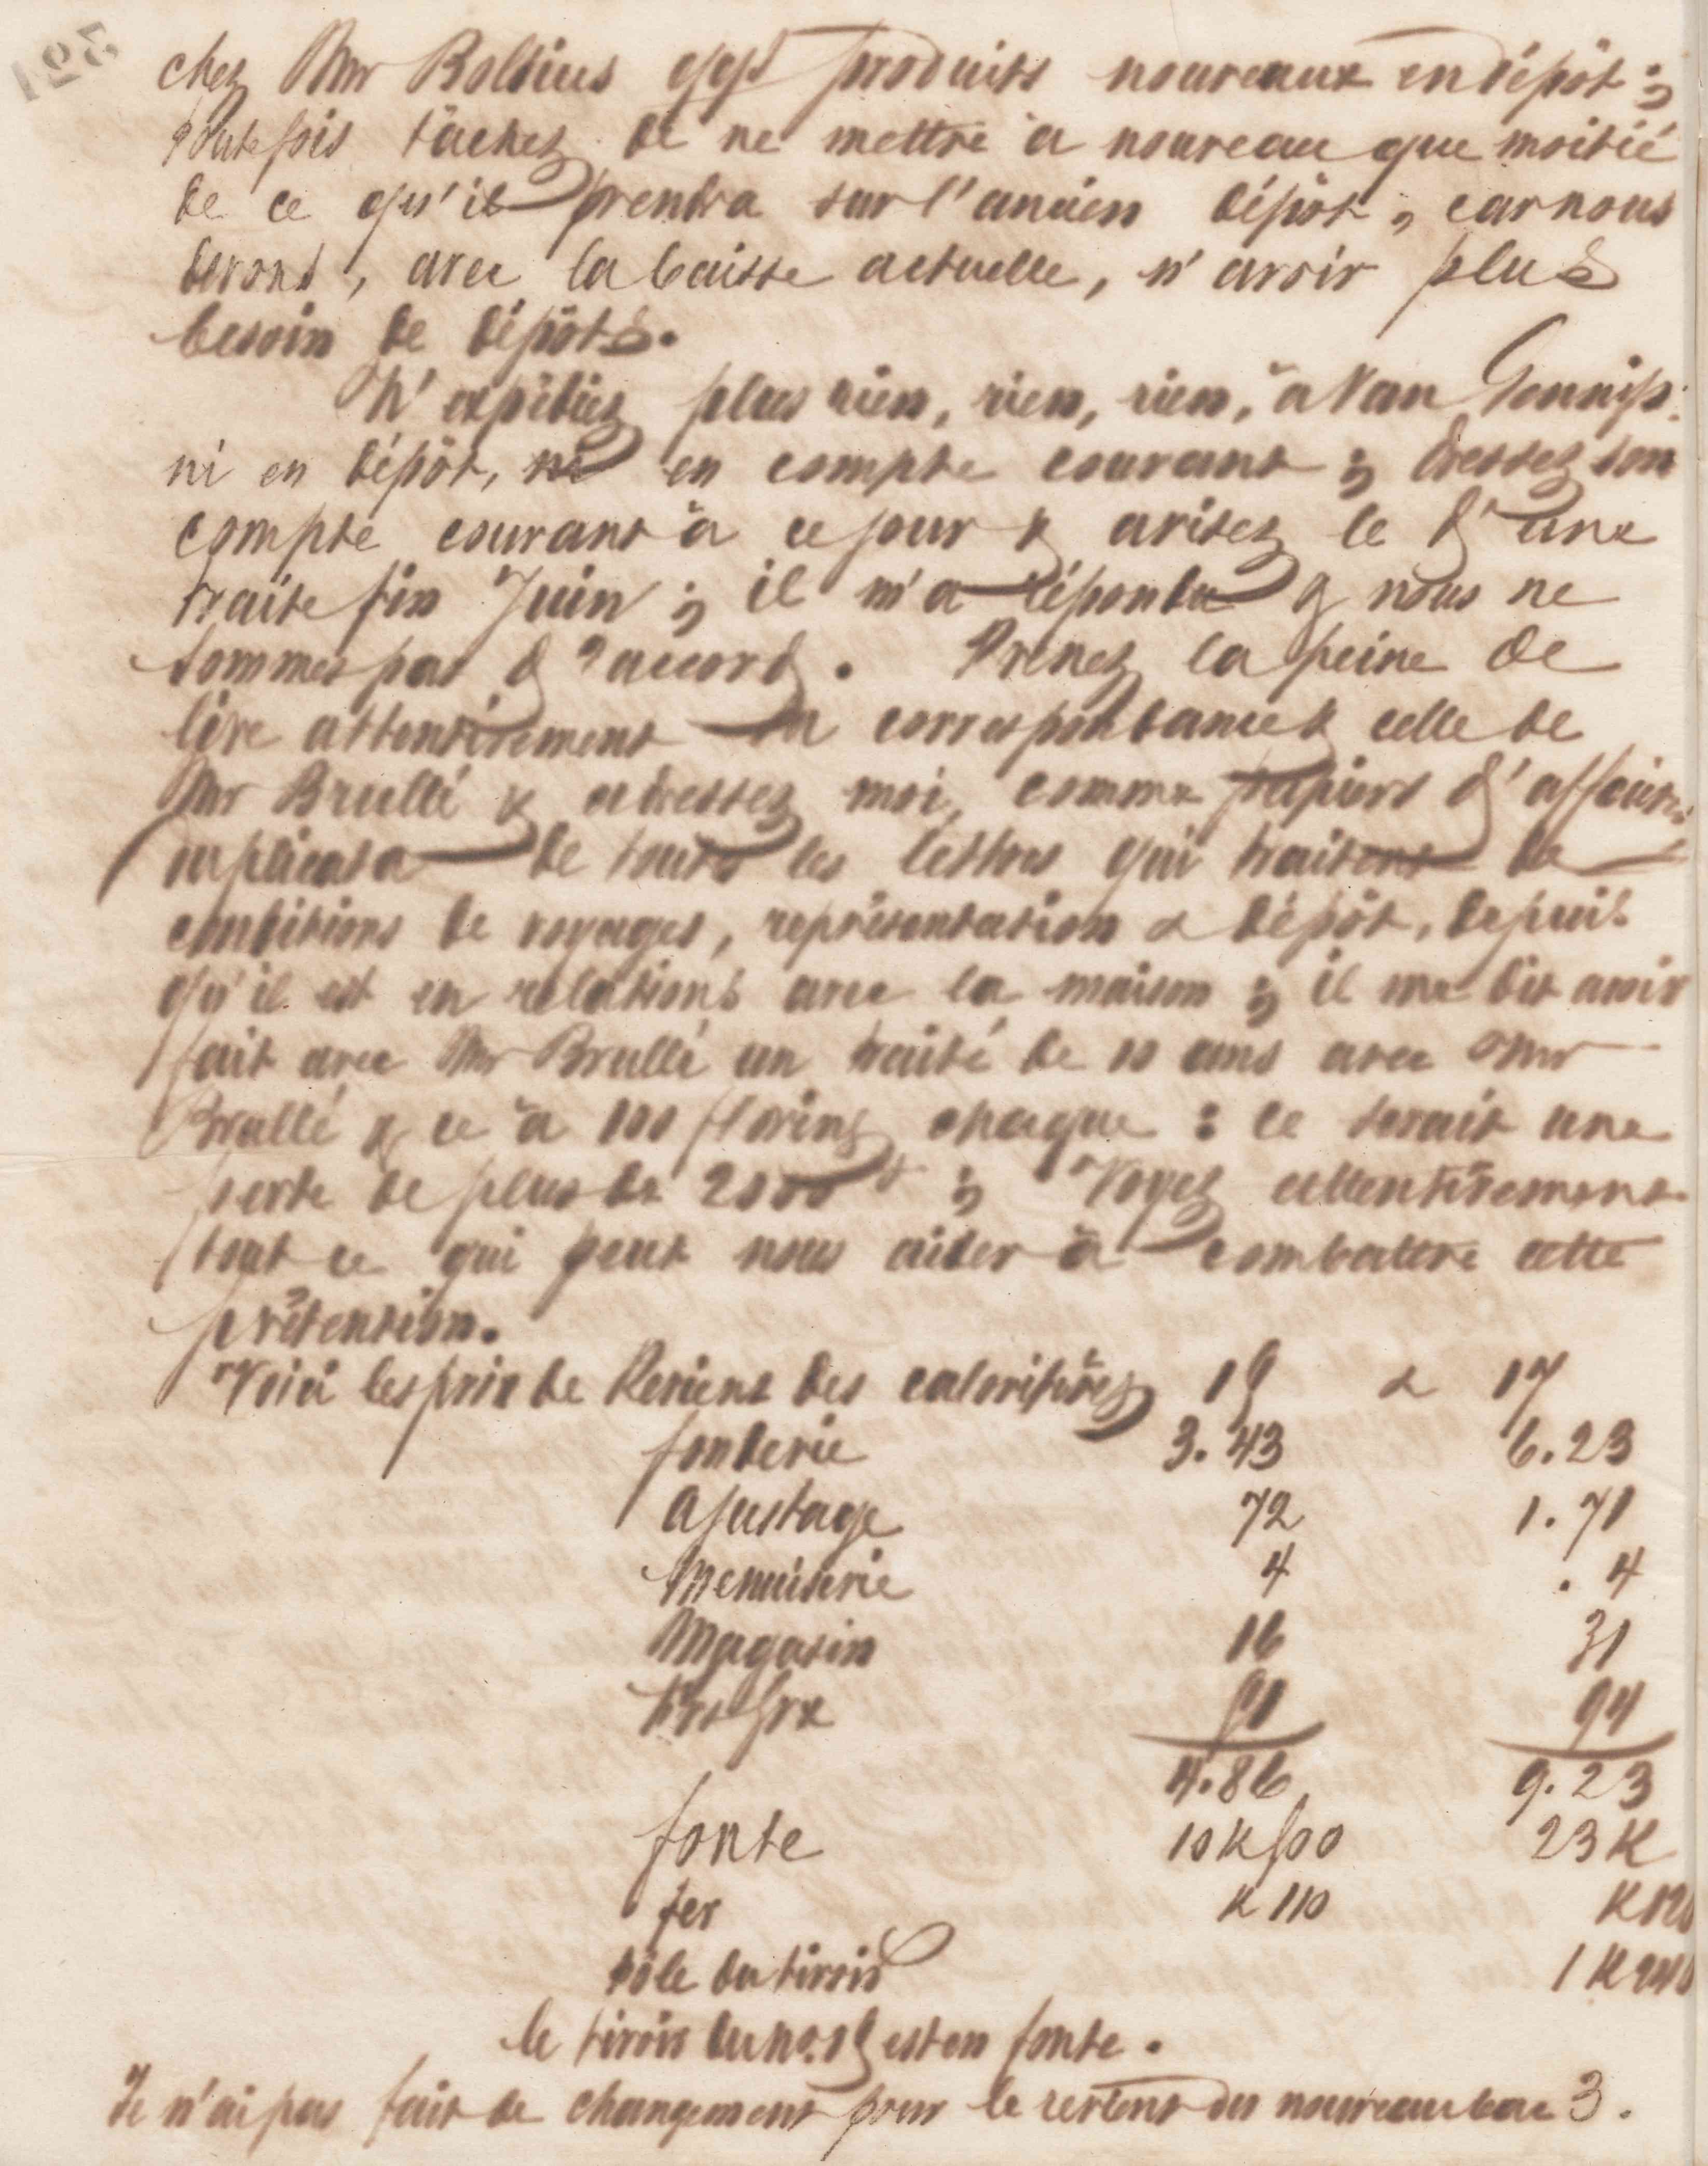 321
chez Mr Boltius qqs produits nouveaux en dépôt ;
toutefois tâchez de ne mettre à nouveau que moitié
de ce qu'il prendra sur l'ancien dépôt, car nous
devons, avec la baisse actuelle, n'avoir plus
besoin de dépôts.
N'expédiez plus rien, rien, rien, à Van
ni en dépôt, ni en compte courant ; dressez son
compte courant à ce jour & avisez le d'une
traite fin Juin ; il m'a répondu q nous ne
sommes pas d'accord. Prenez la peine de
lire attentivement sa correspondance & celle de
Mr Brullé & adressez moi, comme papiers d'affaires
duplicata de toutes les lettres qui traitent de
conditions de voyages, représentation & dépôt, depuis
qu'il est en relations avec la maison ; il me dit avoir
fait avec Mr Brullé un traité de 10 ans avec Mr
Brullé & ce à 100 florins chaque : ce serait une
perte de plus de 2000 f ; Voyez attentivement
tout ce qui peut nous aider à combattre cette
prétention.
Voici les prix de Revient des calorifères 19 & 17
fonderie 3.43 6.23
Ajustage 72 1.71
Menuiserie 4 . 4
Magasin 16 31
frx 91 94
4.86 9.23
fonte 10 K 500 23 K
fer K 110 K 120
tôle du tiroir 1 K
le tiroir du no. 19 est en fonte.
Je n'ai pas fait de changement pour le revient du nouveau bac 3.